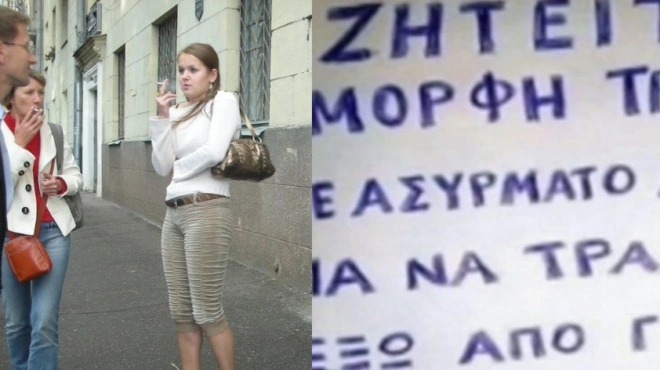 ΖΗΤΕΙΤ
ΜΟΡΦΗ ΤΡ
Ε ΑΣΥΡΜΑΤΟ
ΙΑ ΝΑ ΤΡΑ
ΕΞΩ ΑΠΟ Γ